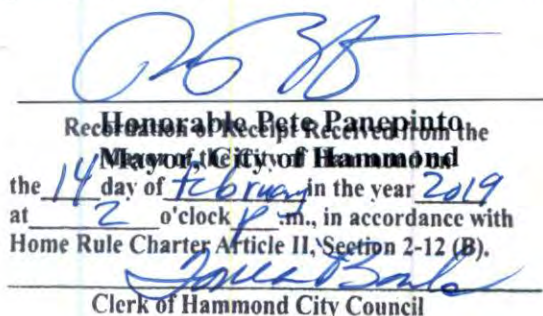 Honorable Pete Panepinto
Recordation of Receipt Received from the
Mayor, City of Hammond
the 14 day of February in the year 2019
at 2 o'clock p.m., in accordance with
Home Rule Charter Article II, Section 2-12 (B).
Clerk of Hammond City Council